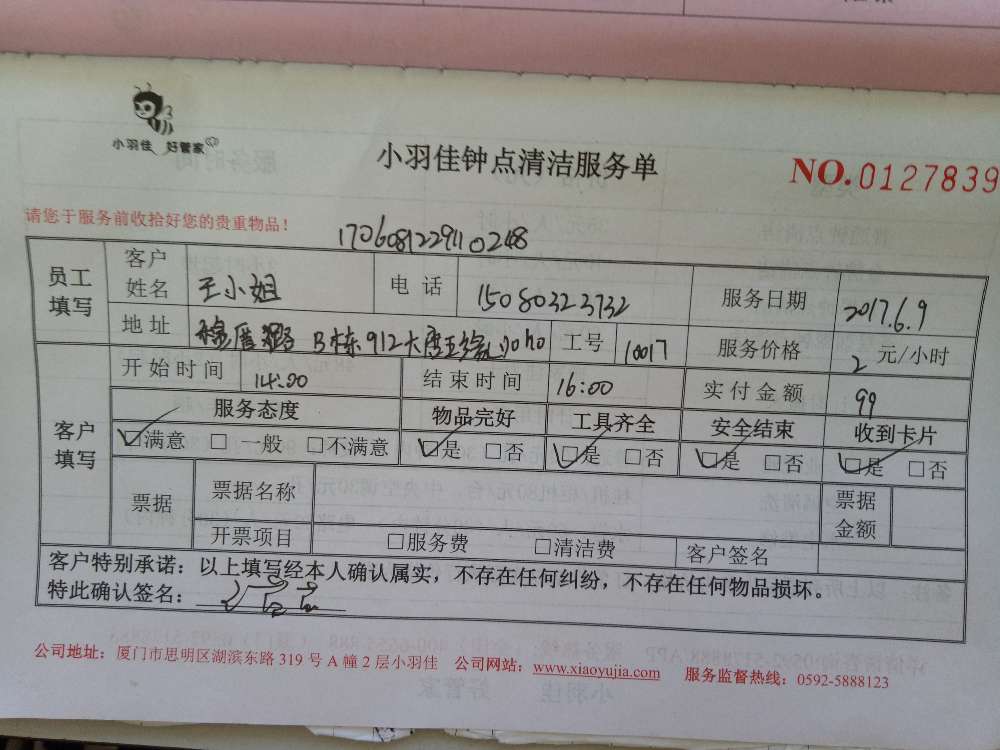 小羽佳 好管家
小羽佳钟点清洁服务单
NO.0127839
请您于服务前收拾好您的贵重物品！
1706081229110248
员工填写 客户姓名 王小姐 电话 15080323732 服务日期 2017.6.9
地址 B栋912大唐 工号 10017 服务价格 2 元/小时
客户填写 开始时间 14:00 结束时间 16:00 实付金额 99
服务态度 物品完好 工具齐全 安全结束 收到卡片
☑满意 □ 一般 □不满意 ☑是 □否 ☑是 □否 ☑是 □否 ☑是 □否
票据 票据名称 票据金额
开票项目 □服务费 □清洁费 客户签名
客户特别承诺：以上填写经本人确认属实，不存在任何纠纷，不存在任何物品损坏。
特此确认签名：
公司地址：厦门市思明区湖滨东路 319 号 A 幢 2 层小羽佳 公司网站：www.xiaoyujia.com 服务监督热线：0592-5888123